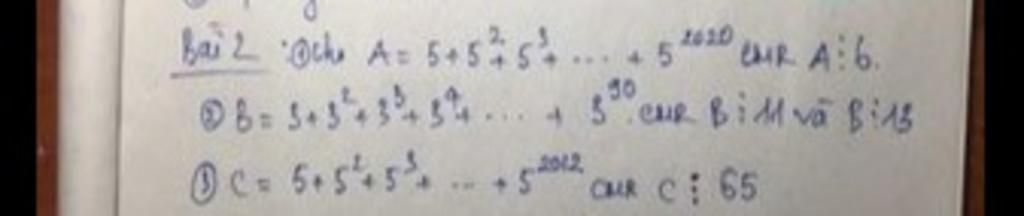 Bài 2 : ① Cho A = 5 + 5² + 5³ + ... + 5²⁰²⁰ CMR A ⋮ 6.
② B = 3 + 3² + 3³ + 3⁴ + ... + 3⁹⁰. CMR B ⋮ 11 và B ⋮ 13
③ C = 5 + 5² + 5³ + ... + 5²⁰¹² CMR C ⋮ 65